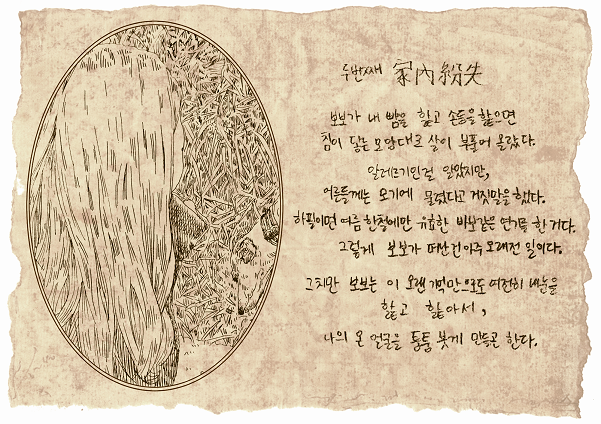 두번째 家內紛失
보보가 내 뺨을 핥고 손등을 핥으면
침이 닿는 모양대로 살이 부풀어 올랐다.
알레르기인걸 알았지만,
어른들께는 모기에 물렸다고 거짓말을 했다.
하필이면 여름 한철에만 유효한 바보같은 연기를 한 거다.
그렇게 보보가 떠난 건 아주 오래전 일이다.
그치만 보보는 이 오랜 기억만으로도 여전히 내 눈을
핥고 핥아서,
나의 온 얼굴을 퉁퉁 붓게 만들곤 한다.